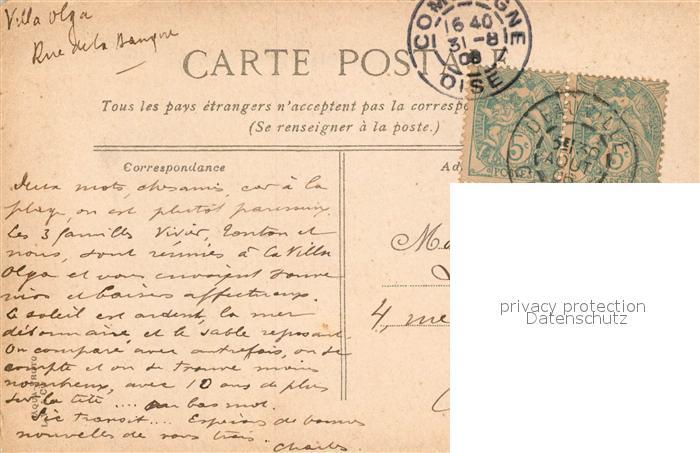 Villa Olga
Rue de la
CARTE POSTA
Tous les pays étrangers n'acceptent pas la corresp
(Se renseigner à la poste.)
COMPIÈGNE
16 40
31 -8
08
OISE
DEAUVILLE
AOUT
Correspondance
Ad
Deux mots, chers amis, car à la
plage, on est plutôt paresseux.
Les 3 familles Vivier, Tonton et
nous, sont réunies à la Villa
Olga et vous envoient souve
nirs et baisers affectueux.
Le soleil est ardent, la mer
et le sable reposant.
On compare avec autrefois, on se
compte et on se trouve moins
nombreux, avec 10 ans de plus
sur la tête ....
Sic transit.... Espérons de bonnes
nouvelles de vous trois.
Charles.
Ma
4, rue
privacy protection
Datenschutz